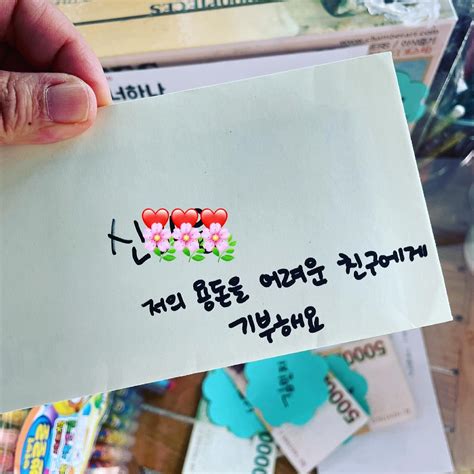 너하나
신
저의 용돈을 어려운 친구에게
기부해요
5000
5000